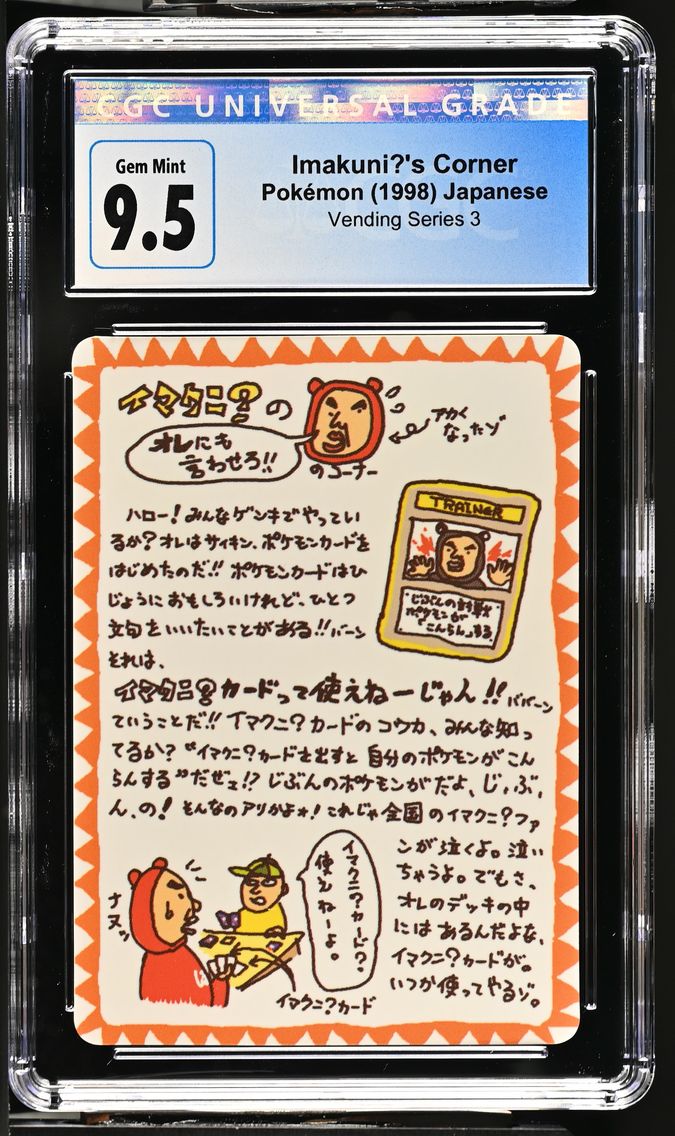 CGC UNIVERSAL GRADE
Gem Mint
9.5
Imakuni?'s Corner
Pokémon (1998) Japanese
Vending Series 3
イマクニ?の
オレにも
言わせろ!!
のコーナー
アカく
なったゾ
ハロー!みんなゲンキでやってい
るか?オレはサイキン、ポケモンカードを
はじめたのだ!!ポケモンカードはひ
じょうにおもしろいけれど、ひとつ
文句をいいたいことがある!!バーン
それは、
TRAINER
じぶんの
ポケモンが
「こんらん」する。
イマクニ?カードって使えねーじゃん!!ババーン
ていうことだ!!イマクニ?カードのコウカ、みんな知っ
てるか?“イマクニ?カードを出すと自分のポケモンがこん
らんする”だぜェ!?じぶんのポケモンがだよ、じ、ぶ、
ん、の!そんなのアリかよォ!これじゃ全国のイマクニ?ファ
ンが泣くよ。泣い
ちゃうよ。でもさ、
オレのデッキの中
にはあるんだよな、
イマクニ?カードが。
いつか使ってやるゾ。
イマクニ?カード?
使えねーよ。
ナヌッ
イマクニ?カード